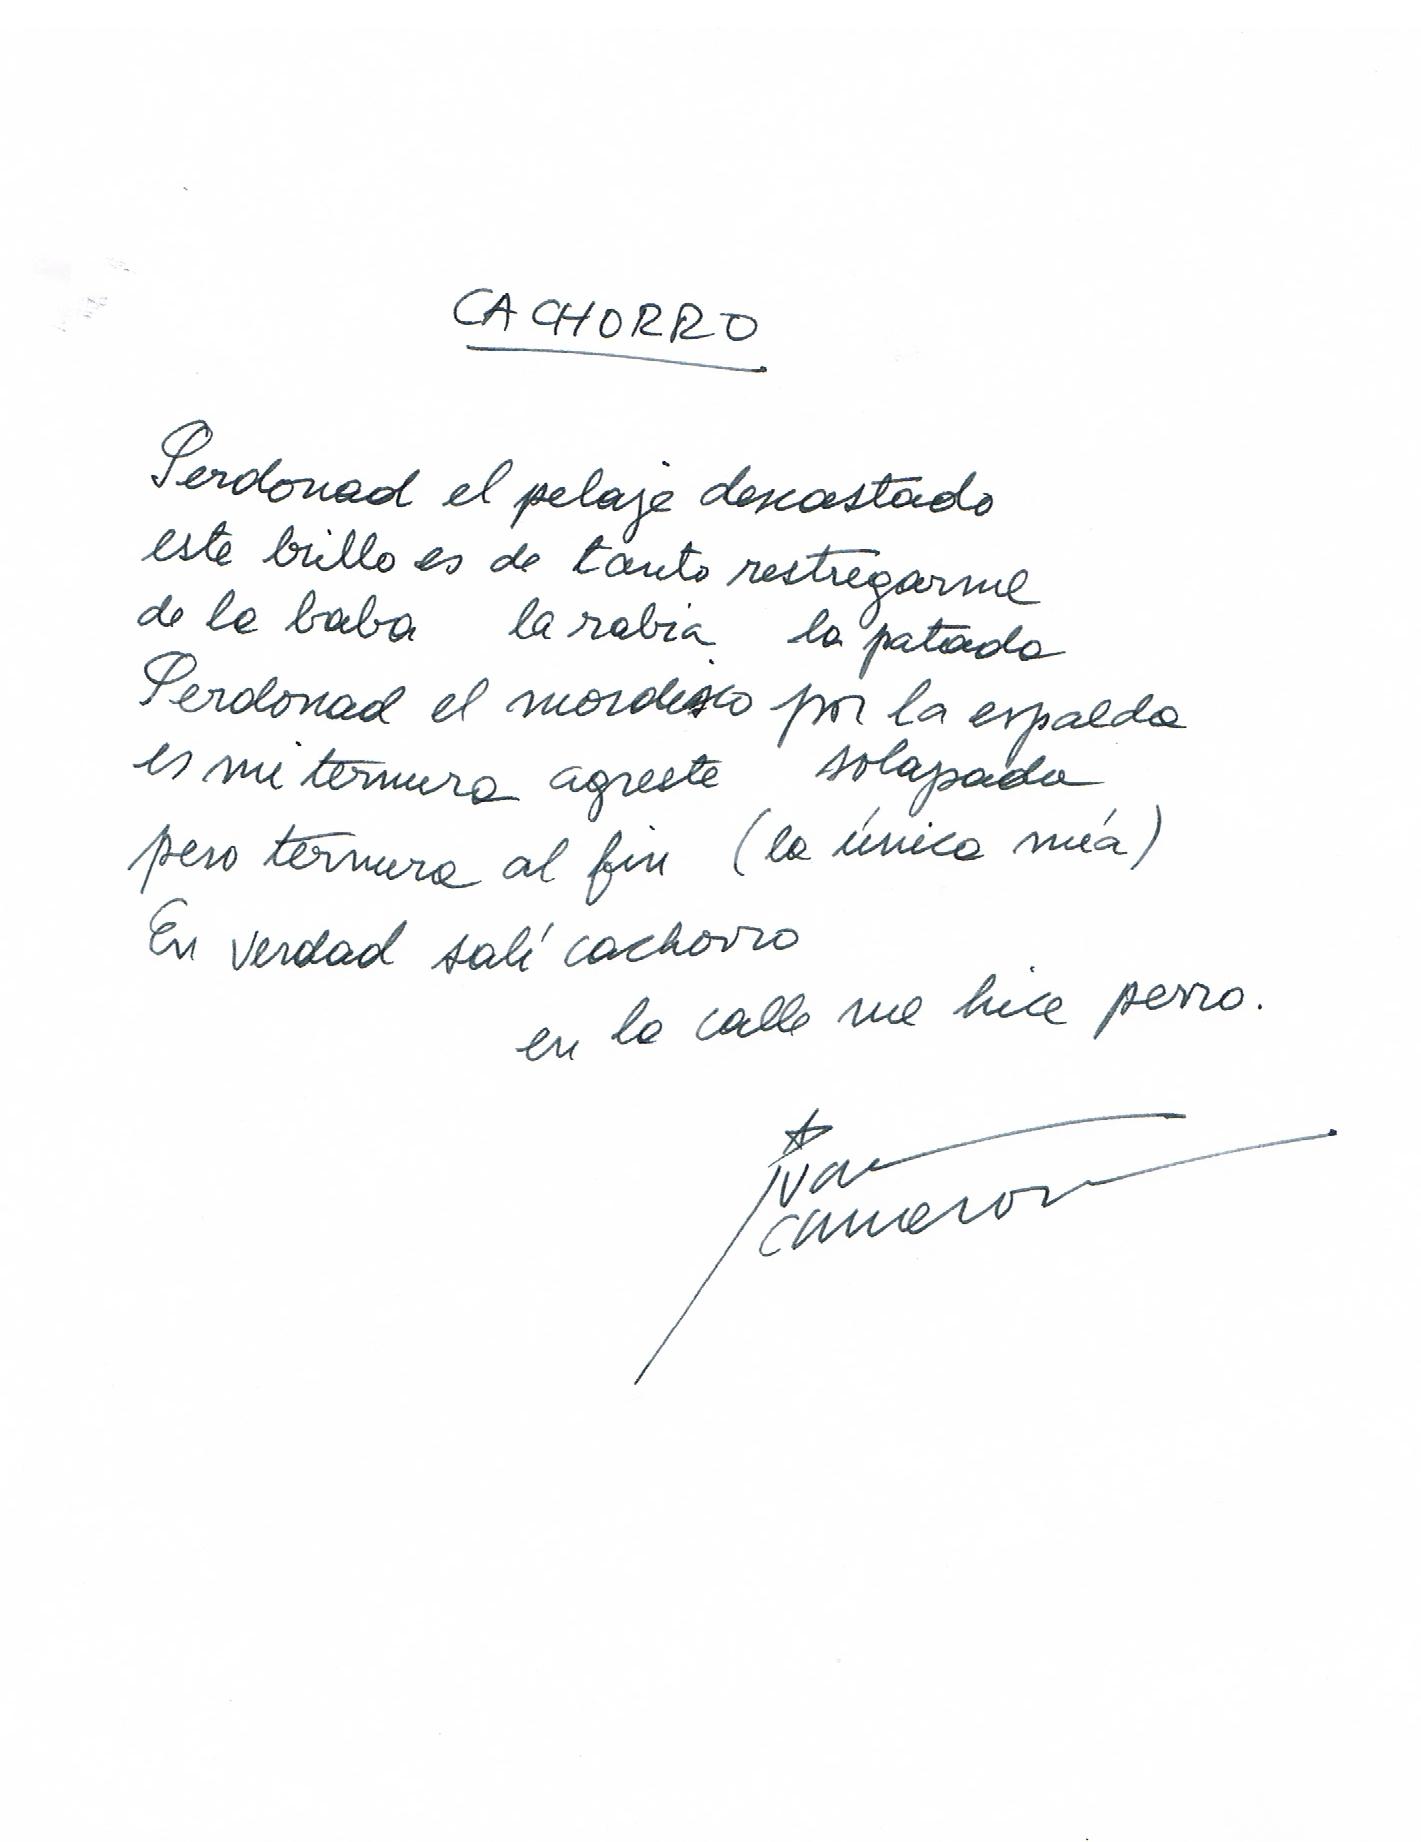 CACHORRO
Perdonad el pelaje descastado
este brillo es de tanto restregarme
de la baba la rabia la patada
Perdonad el mordisco por la espalda
es mi ternura agreste solapada
pero ternura al fin (la única mía)
En verdad salí cachorro
en la calle me hice perro.
Juan
Cameron